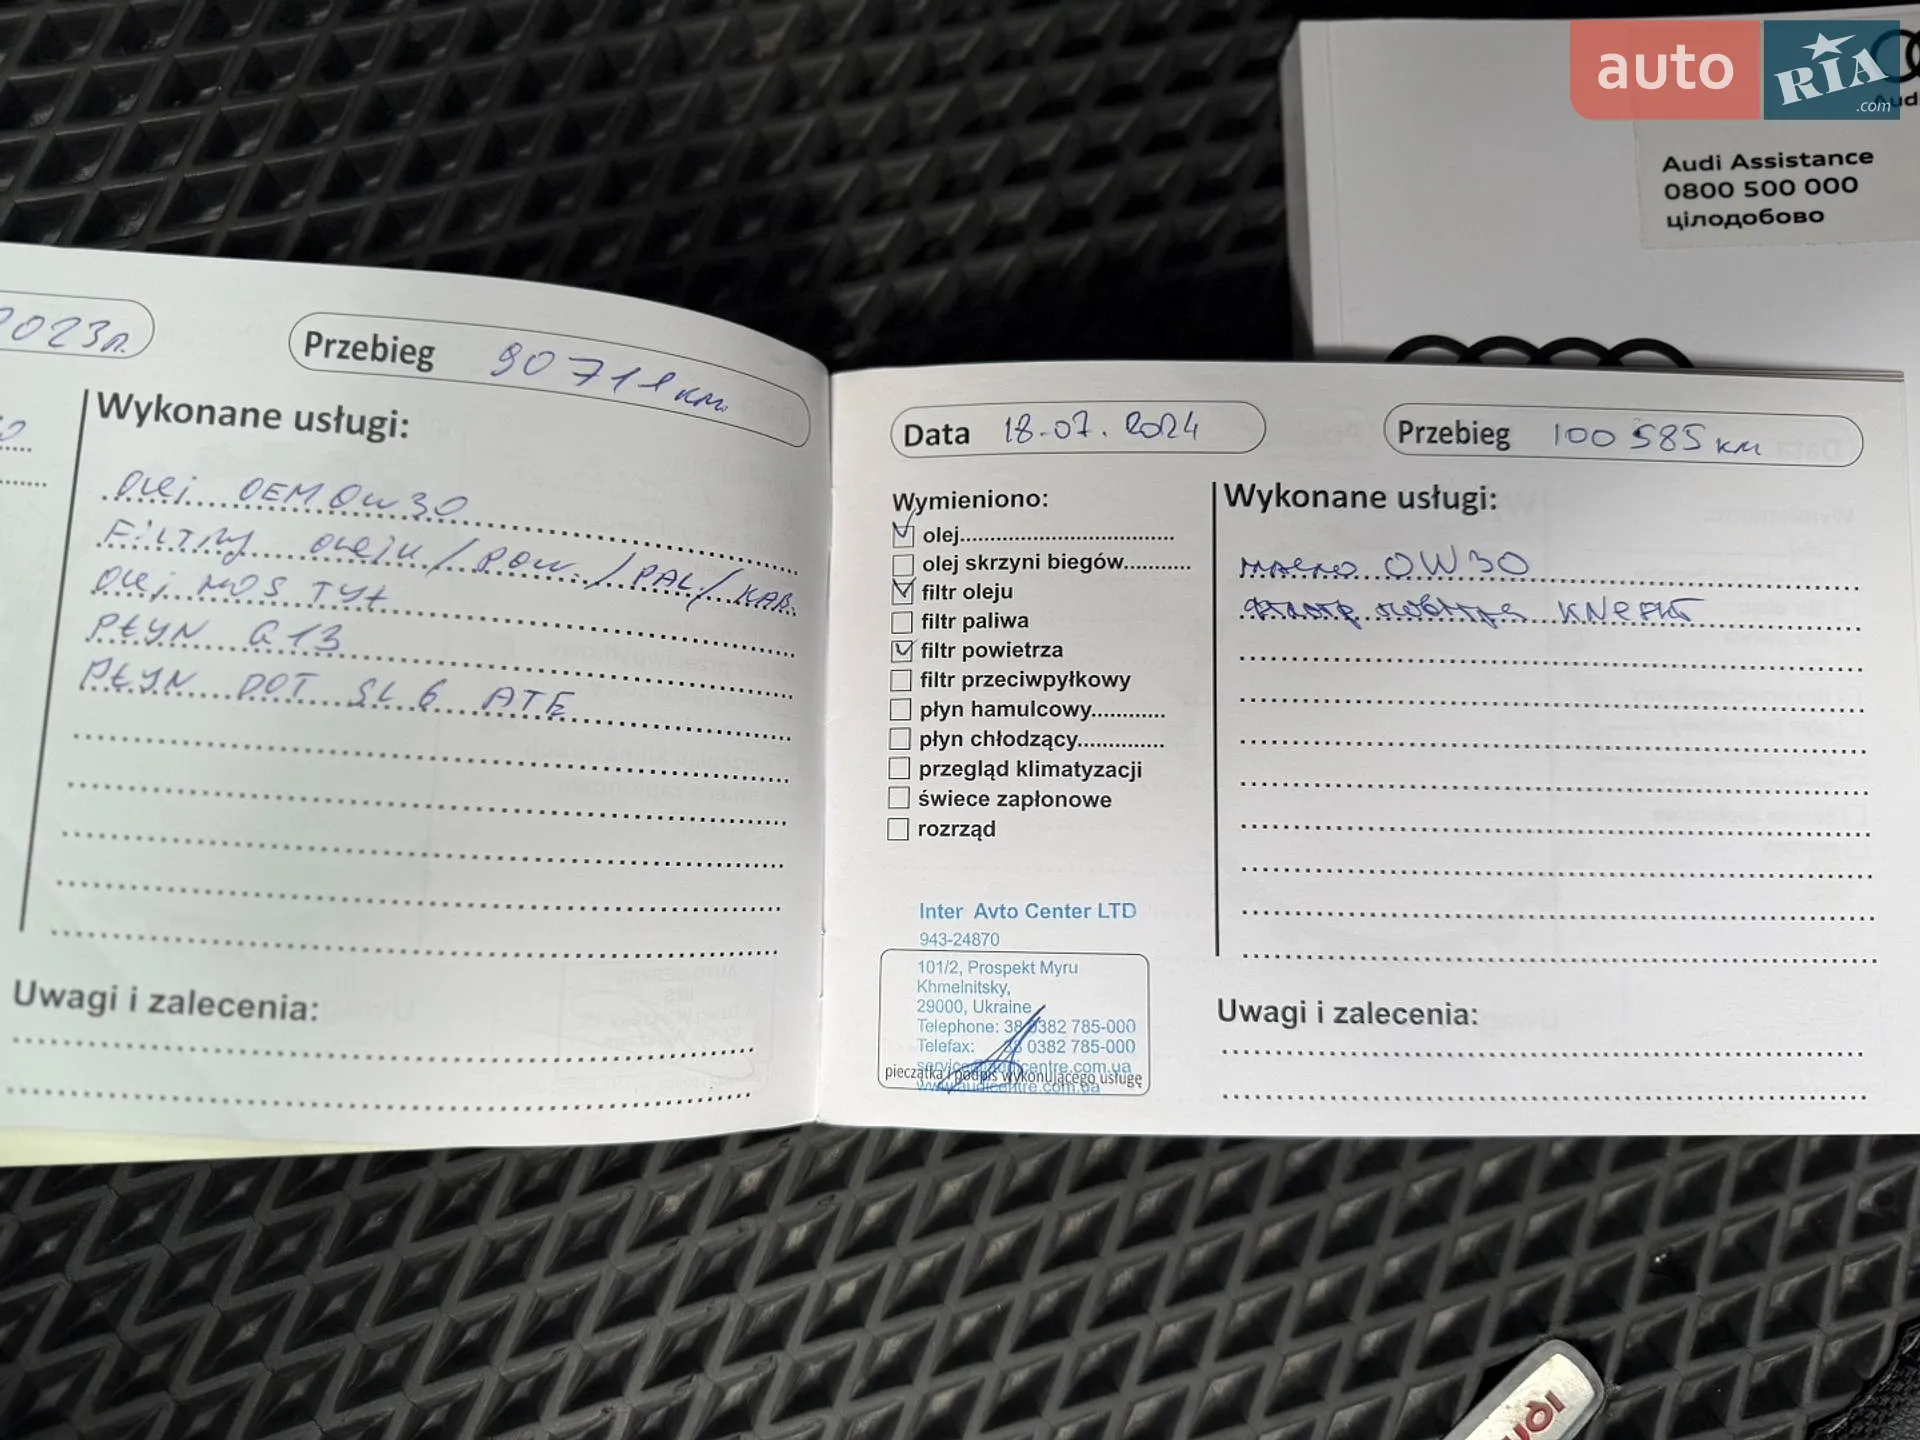 auto RIA.com
Audi Assistance
0800 500 000
цілодобово
2023r.
Przebieg 90711 км.
Wykonane usługi:
Olej OEM 0W30
Filtry oleju / pow. / pal. / kab.
Olej MOS TYŁ
PŁYN G13
PŁYN DOT SL 6 ATE
Uwagi i zalecenia:
Data 18.07.2024
Przebieg 100 585 км
Wymieniono:
olej
olej skrzyni biegów
filtr oleju
filtr paliwa
filtr powietrza
filtr przeciwpyłkowy
płyn hamulcowy
płyn chłodzący
przegląd klimatyzacji
świece zapłonowe
rozrząd
Inter Avto Center LTD
943-24870
101/2, Prospekt Myru
Khmelnitsky,
29000, Ukraine
Telephone: 38 0382 785-000
Telefax: 38 0382 785-000
pieczątka i podpis wykonującego usługę
www.audicentre.com.ua
Wykonane usługi:
масло 0W30
фільтр повітря KNECHT
Uwagi i zalecenia:
Audi